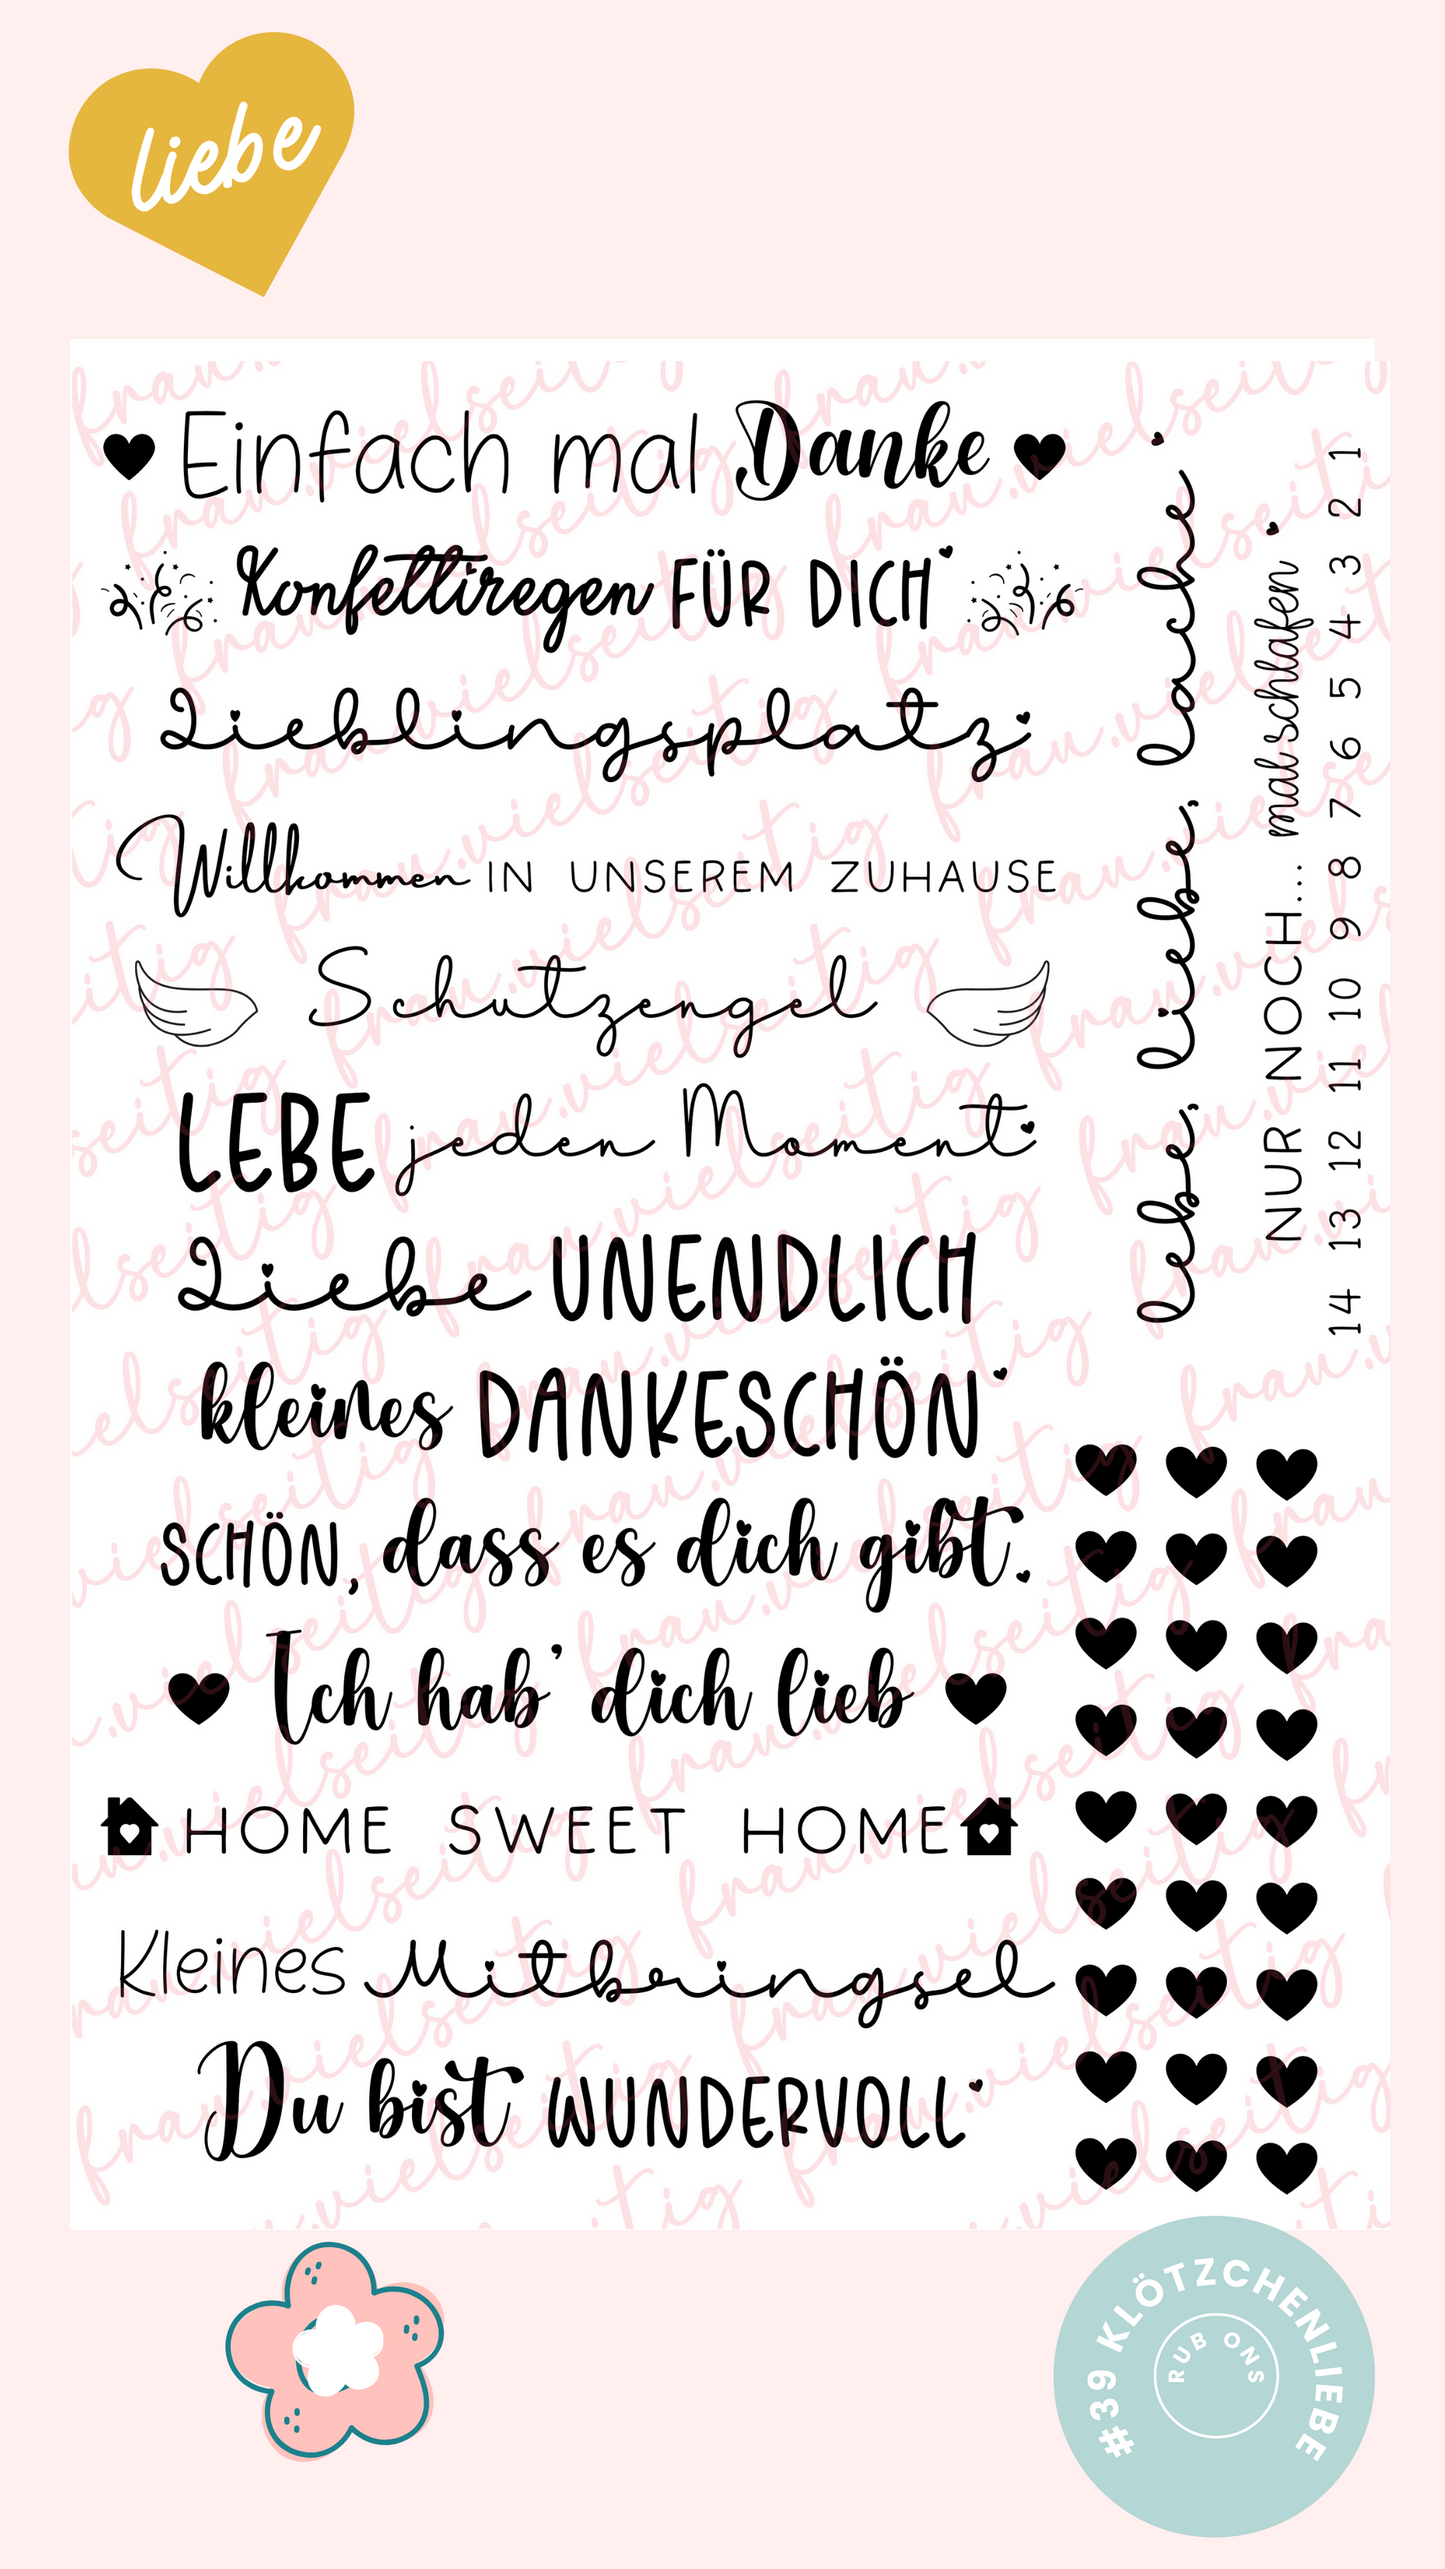 liebe
Einfach mal Danke
Konfettiregen FÜR DICH
Lieblingsplatz
Willkommen IN UNSEREM ZUHAUSE
Schutzengel
LEBE jeden Moment
Liebe UNENDLICH
kleines DANKESCHÖN
SCHÖN, dass es dich gibt.
Ich hab' dich lieb
HOME SWEET HOME
Kleines Mitbringsel
Du bist WUNDERVOLL
lebe, liebe, lache
NUR NOCH... mal schlafen
14 13 12 11 10 9 8 7 6 5 4 3 2 1
frau.vielseitig
#39 KLÖTZCHENLIEBE
RUB ONS